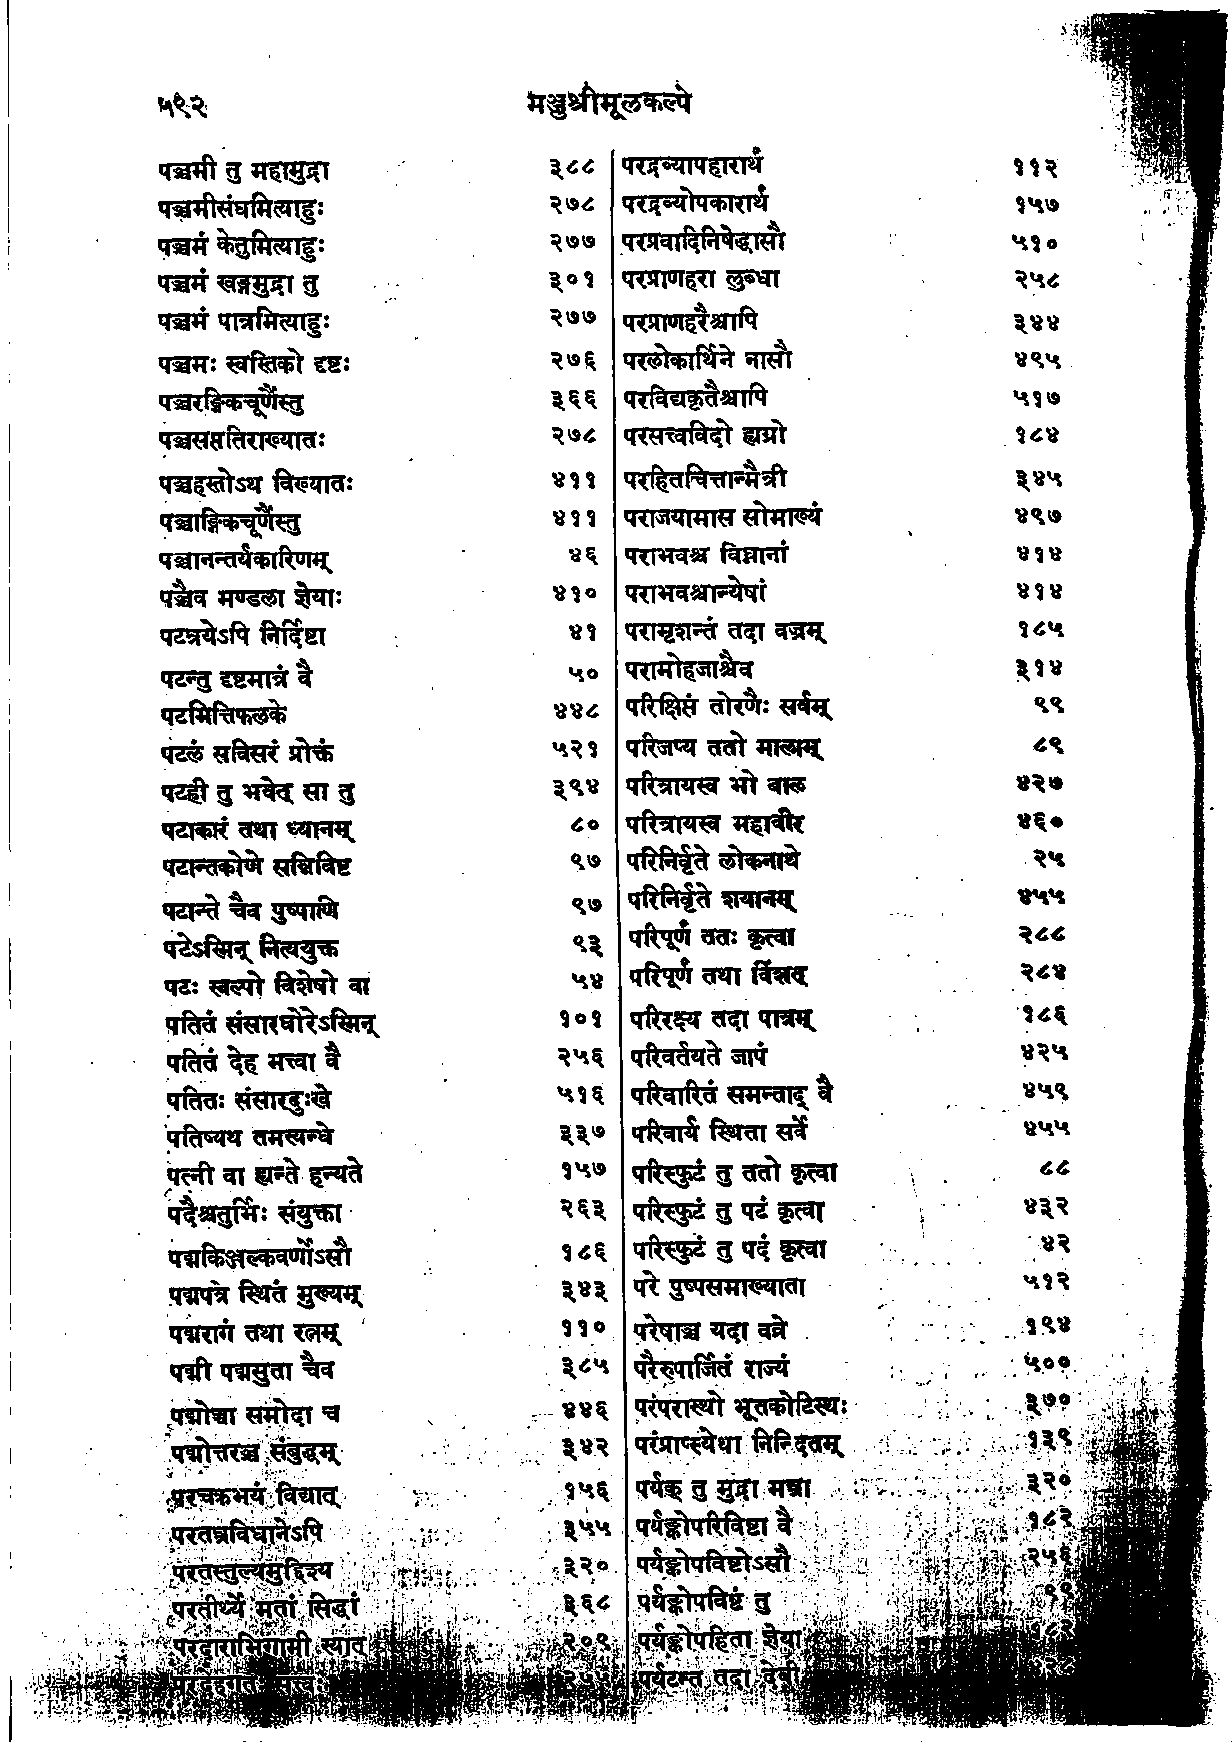 ५९२
मञ्जुश्रीमूलकल्पे
पञ्चमी तु महामुद्रा ३८८
पञ्चमीसंघमित्याहुः २७८
पञ्चमं केतुमित्याहुः २७७
पञ्चमं खङ्गमुद्रा तु ३०१
पञ्चमं पात्रमित्याहुः २७७
पञ्चमः स्वस्तिको दृष्टः २७६
पञ्चरङ्गिकचूर्णैस्तु ३६६
पञ्चसप्ततिराख्यातः २७८
पञ्चहस्तोऽथ विख्यातः ४११
पञ्चाङ्गिकचूर्णैस्तु ४११
पञ्चानन्तर्यकारिणम् ४६
पञ्चैव मण्डला ज्ञेयाः ४१०
पटत्रयेऽपि निर्दिष्टा ४१
पटन्तु दृष्टमात्रं वै ५०
पटमित्तिफलके ४४८
पटलं सविसरं प्रोक्तं ५२१
पटही तु भवेत् सा तु ३९४
पटाकारं तथा ध्यानम् ८०
पटान्तकोणे सन्निविष्ट ९७
पटान्ते चैव पुष्पाणि ९७
पटेऽस्मिन् नित्ययुक्त ९३
पटः स्वल्पो विशेषो वा ५४
पतितं संसारघोरेऽस्मिन् १०१
पतितं देह मत्त्वा वै २५६
पतितः संसारदुःखे ५१६
पतिष्यथ तमस्यन्धे ३३७
पत्नी वा ह्यन्ते हन्यते १५७
पदैश्चतुर्भिः संयुक्ता २६३
पद्मकिञ्जल्कवर्णोऽसौ १८६
पद्मपत्रे स्थितं मुख्यम् ३४३
पद्मरागं तथा रत्नम् ११०
पद्मी पद्मसुता चैव ३८५
पद्मोच्चा समोदा च ४४६
पद्मोत्तरञ्च संबुद्धम् ३४२
परचक्रभयं विद्यात् १५६
परतन्त्रविधानेऽपि ३५५
परतस्तुल्यमुद्दिश्य ३२०
परतीर्थ्ये मतां सिद्धां ३६८
परदाराभिगामी स्यात् २०९
परद्रव्यापहारार्थं ११२
परद्रव्योपकारार्थं १५७
परप्रवादिनिषेद्धासौ ५१०
परप्राणहरा लुब्धा २५८
परप्राणहरैश्चापि ३४४
परलोकार्थिने नासौ ४९५
परविद्यकृतैश्चापि ५१७
परसत्त्वविदो ह्यग्रो १८४
परहितचित्तान्मैत्री ३४५
पराजयामास सोमाख्यं ४९७
पराभवश्च विघ्नानां ४१४
पराभवश्चान्येषां ४१४
परामृशन्तं तदा वज्रम् १८५
परामोहजाश्चैव ३१४
परिक्षिप्तं तोरणैः सर्वम् ९९
परिजप्य ततो मालाम् ८९
परित्रायस्व भो बाल ४२७
परित्रायस्व महावीर ४६०
परिनिर्वृते लोकनाथे २५
परिनिर्वृते शयानम् ४५५
परिपूर्णं ततः कृत्वा २८८
परिपूर्णं तथा विंशत् २८४
परिरक्ष्य तदा पात्रम् १८६
परिवर्तयते जापं ४२५
परिवारितं समन्ताद् वै ४५९
परिवार्य स्थिता सर्वे ४५५
परिस्फुटं तु ततो कृत्वा ८८
परिस्फुटं तु पटं कृत्वा ४३२
परिस्फुटं तु पदं कृत्वा ४२
परे पुष्पसमाख्याता ५१२
परेषाञ्च यदा वव्रे १९४
परैरुपार्जितं राज्यं ५००
परंपरास्थो भूतकोटिस्थः ३७०
परंप्राप्स्येथा निन्दितम् १३९
पर्यङ्क् तु मुद्रा मन्त्रा ३२०
पर्यङ्कोपरिविष्टा वै १८२
पर्यङ्कोपविष्टोऽसौ २५६
पर्यङ्कोपविष्टं तु ९९
पर्यङ्कोपहिता ज्ञेया
पर्यटन्त तदा देवी